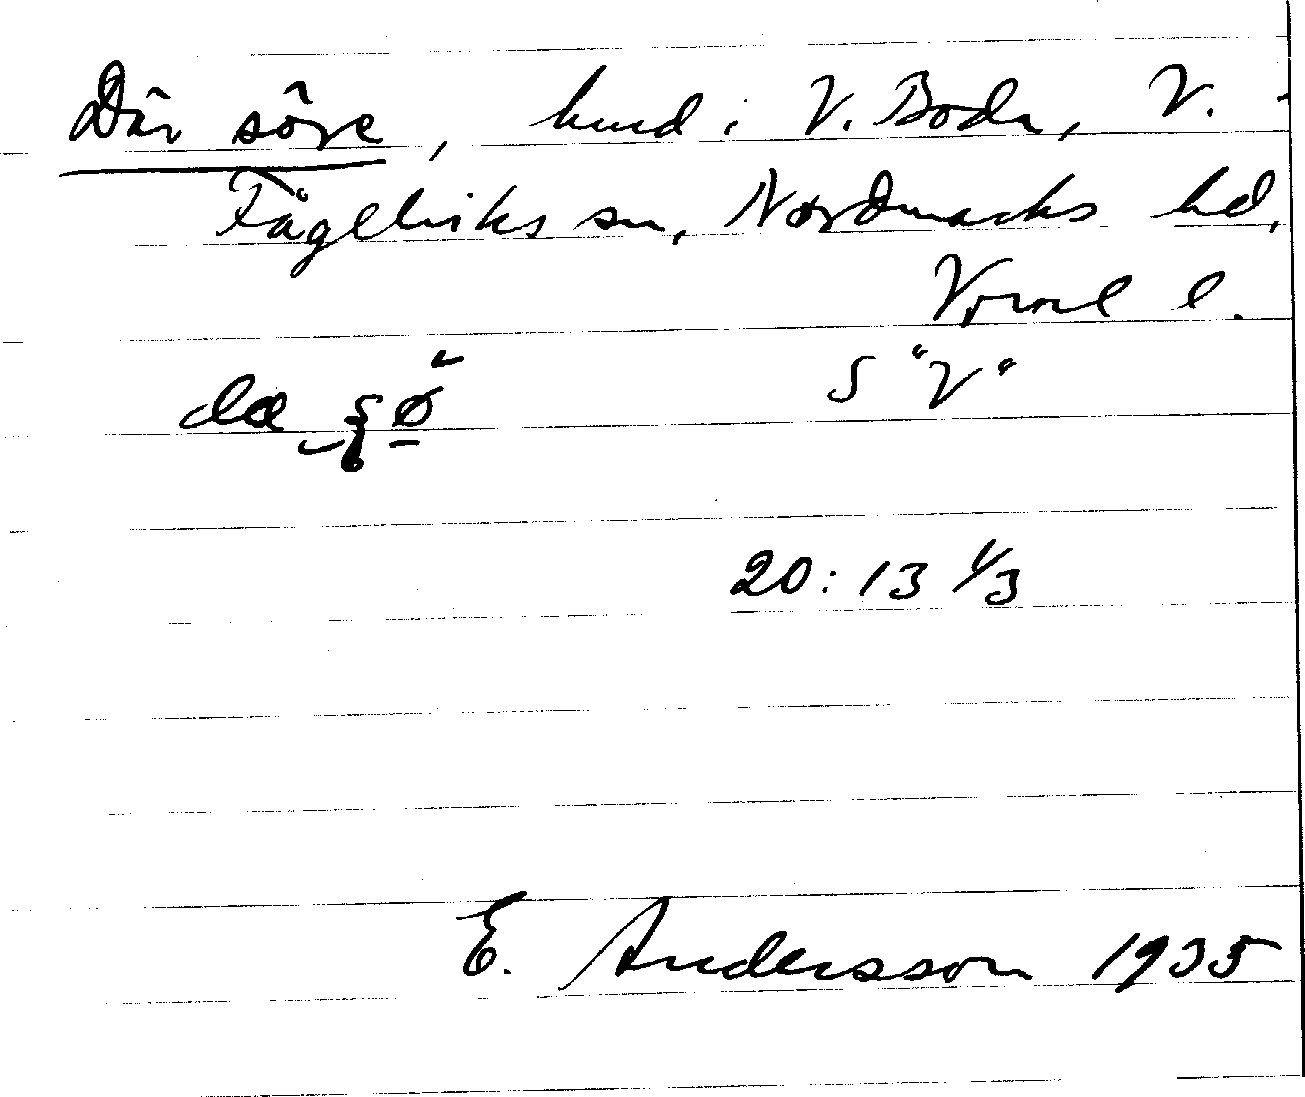 Där söre, hmd i V. Boda, V.
Fågelviks sn, Nordmarks hd,
Värml l.
S "V"
20:13 1/3
E. Andersson 1935